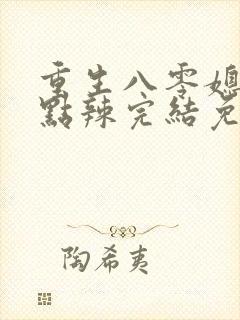 重生八零媳
點辣完結免
陶希夷